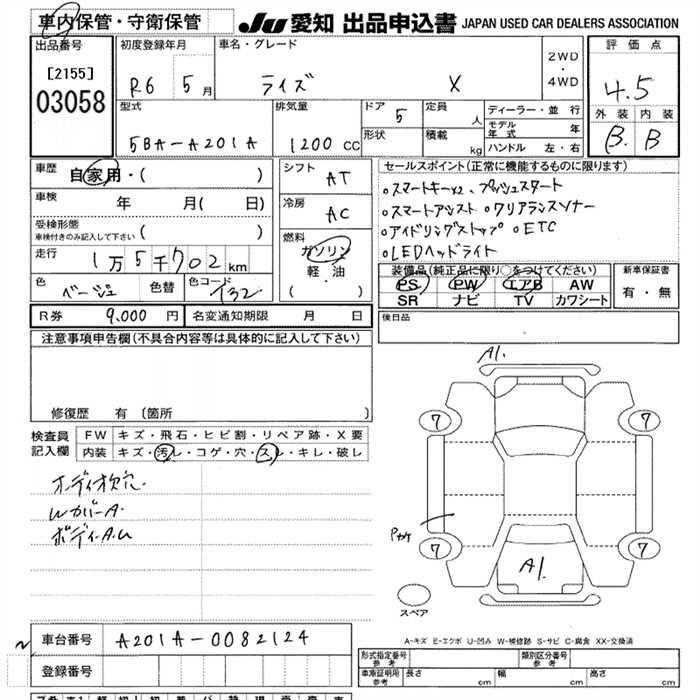 車内保管・守衛保管 JU 愛知 出品申込書 JAPAN USED CAR DEALERS ASSOCIATION
出品番号 初度登録年月 車名・グレード 2WD・4WD 評価点
[2155] R6 5月 ライズ X 4.5
03058
型式 排気量 ドア 5 定員 人 ディーラー・並行 外装 内装
5BA-A201A 1200cc 形状 積載 kg モデル年式 年 B. B
ハンドル 左・右
車歴 自家用・( ) シフト AT セールスポイント(正常に機能するものに限ります)
車検 年 月( 日) 冷房 AC
。スマートキー×2、プッシュスタート
。スマートアシスト 。クリアランスソナー
。アイドリングストップ 。ETC
。LEDヘッドライト
受検形態 車検付きのみ記入して下さい ( ) 燃料 ガソリン 軽・油 ・( )
走行 1万5千702km
色 ベージュ 色替 色コード T32
装備品(純正品に限り○をつけてください) 新車保証書
PS PW エアB AW 有・無
SR ナビ TV カワシート
R券 9,000円 名変通知期限 月 日 後日品
注意事項申告欄(不具合内容等は具体的に記入して下さい)
修復歴 有 〔箇所 〕
検査員記入欄 FW キズ・飛石・ヒビ割・リペア跡・X要
内装 キズ・汚レ・コゲ・穴・スレ・キレ・破レ
オーディオ欠穴.
WカバーA.
ボディーA.U
A1.
7 7
7 7
Pカケ
A1.
スペア
A-キズ E-エクボ U-凹み W-補修跡 S-サビ C-腐食 XX-交換済
車台番号 A201A-0082124
登録番号
形式指定番号 参考 類別区分番号 参考
車庫証明用 参考 長さ cm 幅 cm 高さ cm